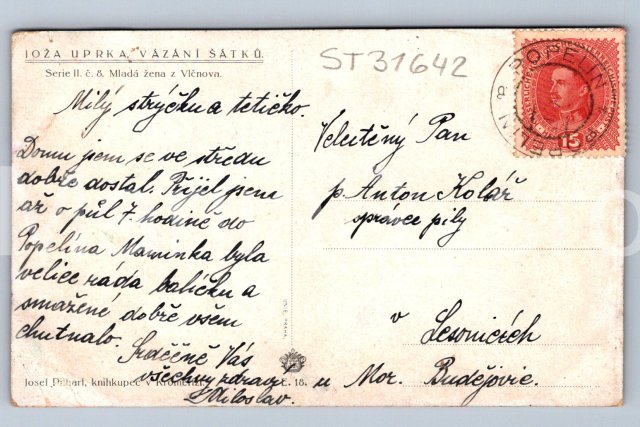 JOŽA UPRKA, VÁZÁNÍ ŠÁTKŮ.
Serie II. č. 8. Mladá žena z Vlčnova.
ST31642
POPELIN
15
Milý strýčku a tetičko.
Domu jsem se ve středu
dobře dostal. Přijel jsem
až o půl 7. hodině do
Popelína Maminka byla
velice ráda balíčku a
smažené dobře všem
chutnalo. Srdečně Vás
všechny zdraví
Miloslav.
Velectěný Pan
p. Anton Kolář
správce pily
v
u Mor. Budějovic.
Josef Pithart, knihkupec v
č. 18.